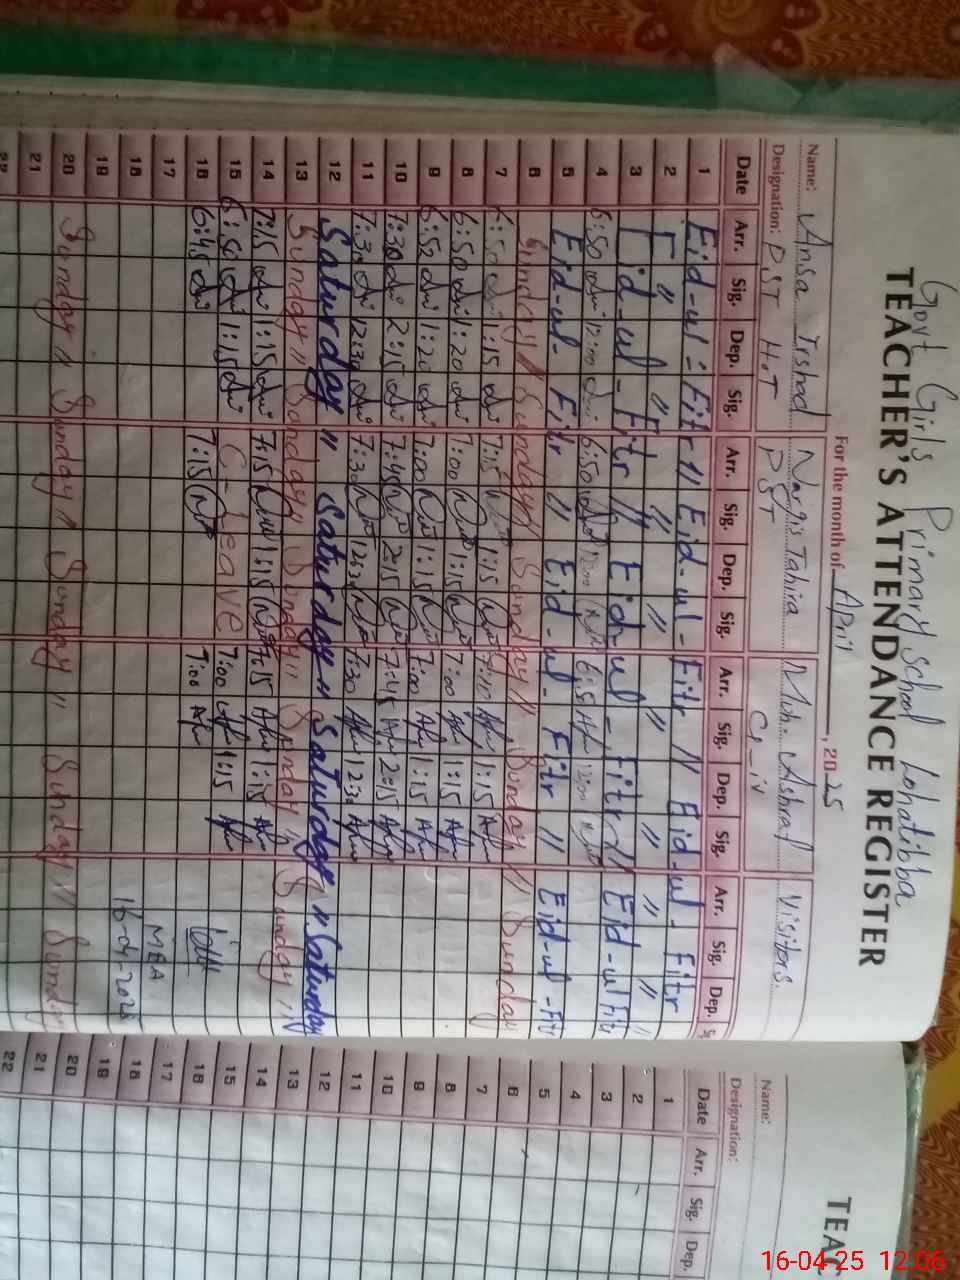 Govt Girls Primary School Lohatibba
TEACHER'S ATTENDANCE REGISTER
For the month of April, 2025
Name: Ansa Irshad Nargis Tahira Muh. Ashraf Visitors.
Designation: PST H.T PST C_iv
Date Arr. Sig. Dep. Sig. Arr. Sig. Dep. Sig. Arr. Sig. Dep. Sig. Arr. Sig. Dep. S
1 Eid-ul-Fitr // Eid-ul-Fitr // Eid-ul-Fitr
2 " " " " " "
3 Eid-ul-Fitr // Eid-ul-Fitr // Eid-ul Fitr
4 6:50 12:00 6:50 12:00 6:50 12:00
5 Eid-ul-Fitr // Eid-ul-Fitr // Eid-ul-Fitr
6 Sunday // Sunday // Sunday // Sunday // Sunday
7 6:50 1:15 7:15 1:15 7:10 1:15
8 6:50 1:20 7:00 1:15 7:00 1:15
9 6:52 1:20 7:00 1:15 7:00 1:15
10 7:30 2:15 7:45 2:15 7:45 2:15
11 7:30 12:30 7:30 12:30 7:30 12:30
12 Saturday " Saturday " Saturday " Saturday
13 Sunday // Sunday // Sunday // Sunday // Sunday //
14 7:15 1:15 7:15 1:15 7:15 1:15
15 6:50 1:15 C-Leave 7:00 1:15
16 6:45 7:15 7:00
17 MEA
18 16-04-2025
19
20 Sunday // Sunday // Sunday // Sunday // Sunday
21
22
TEAC
Name:
Designation:
Date Arr. Sig. Dep.
1
2
3
4
5
6
7
8
9
10
11
12
13
14
15
16
17
18
19
20
21
22
16-04-25 12:06